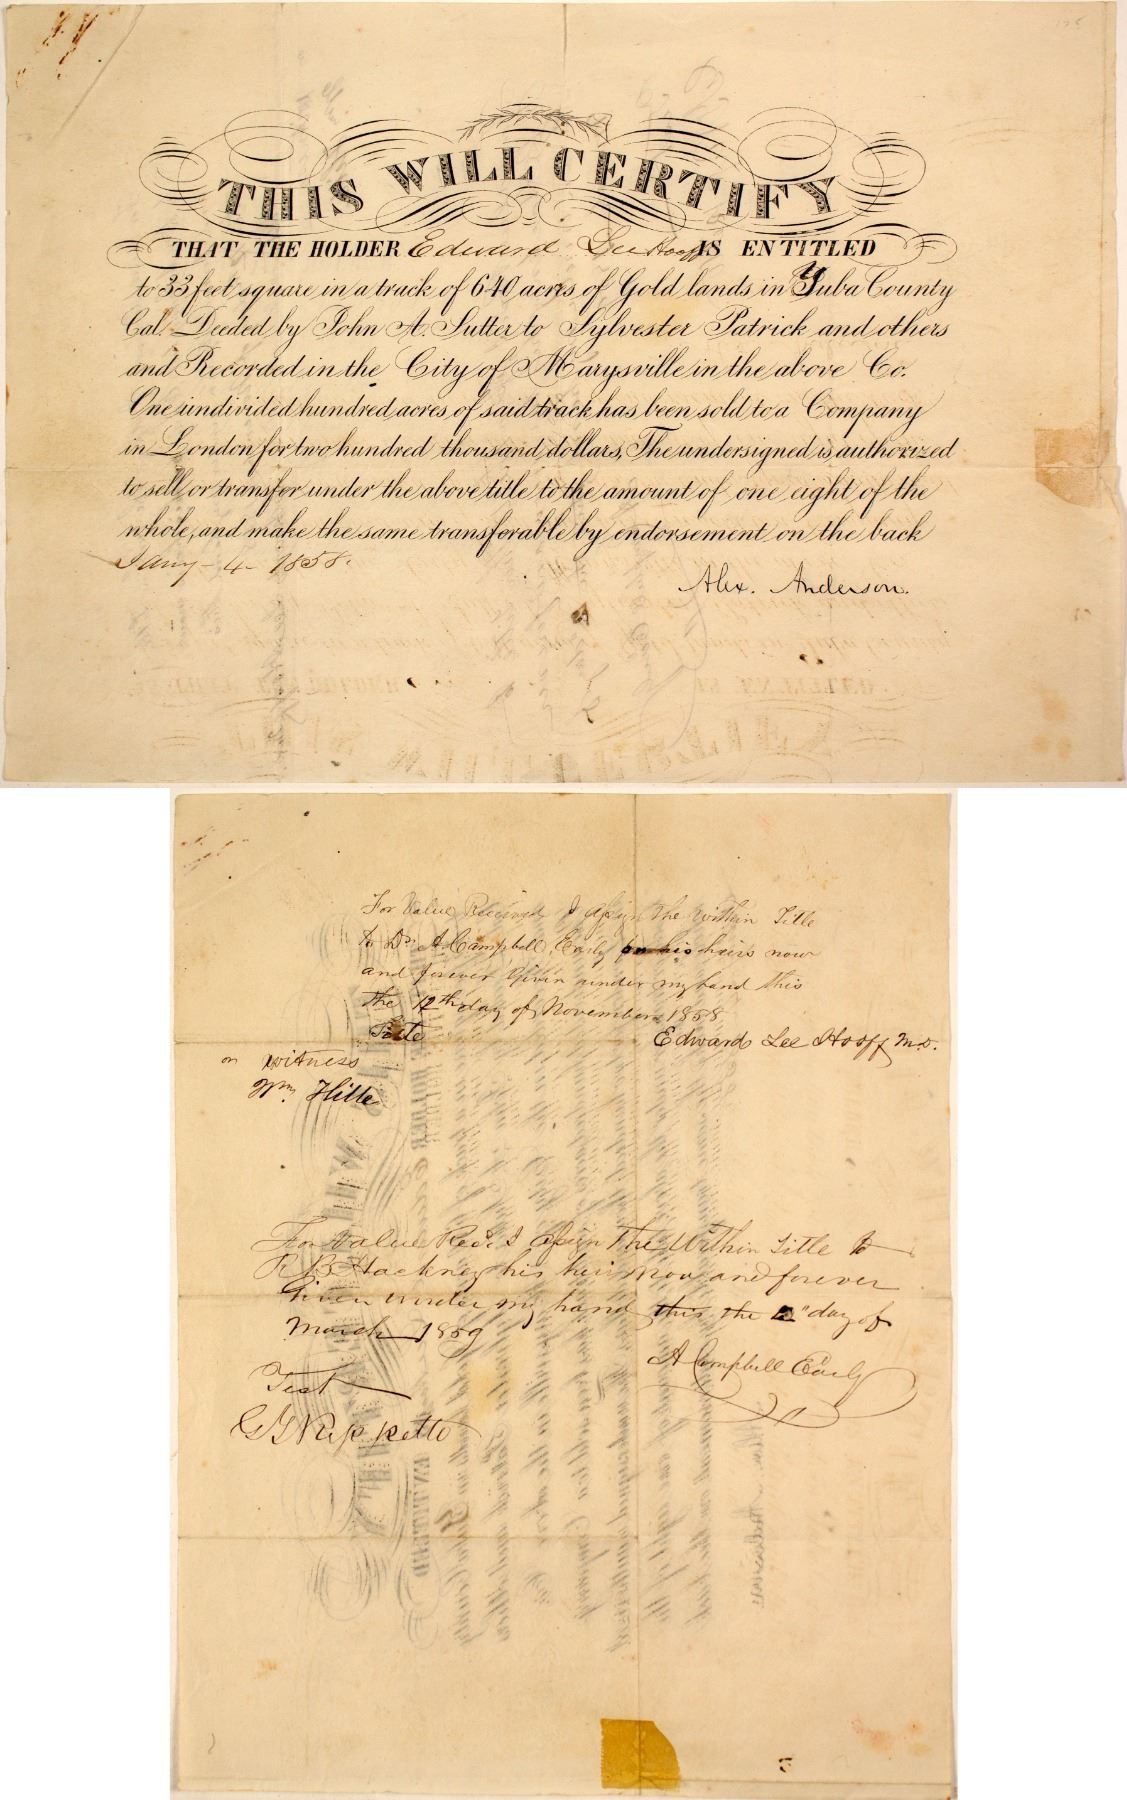 THIS WILL CERTIFY
THAT THE HOLDER Edward Lee Hooff IS ENTITLED
to 33 feet square in a track of 640 acres of Gold lands in Yuba County
Cal. Deeded by John A. Sutter to Sylvester Patrick and others
and Recorded in the City of Marysville in the above Co.
One undivided hundred acres of said track has been sold to a Company
in London for two hundred thousand dollars, The undersigned is authorized
to sell or transfer under the above title to the amount of one eight of the
whole, and make the same transferable by endorsement on the back
Jany - 4 - 1858.
Alex. Anderson.
For Value Received I assign the within Title
to Dr. A. Campbell Early his heirs now
and forever Given under my hand this
the 12th day of November 1858
Edward Lee Hooff M.D.
on witness
Wm Hitte
For Value Recd. I assign The Within Title to
R B Hackney his heirs now and forever
Given under my hand this the day of
March 1859
A Campbell Early
Test